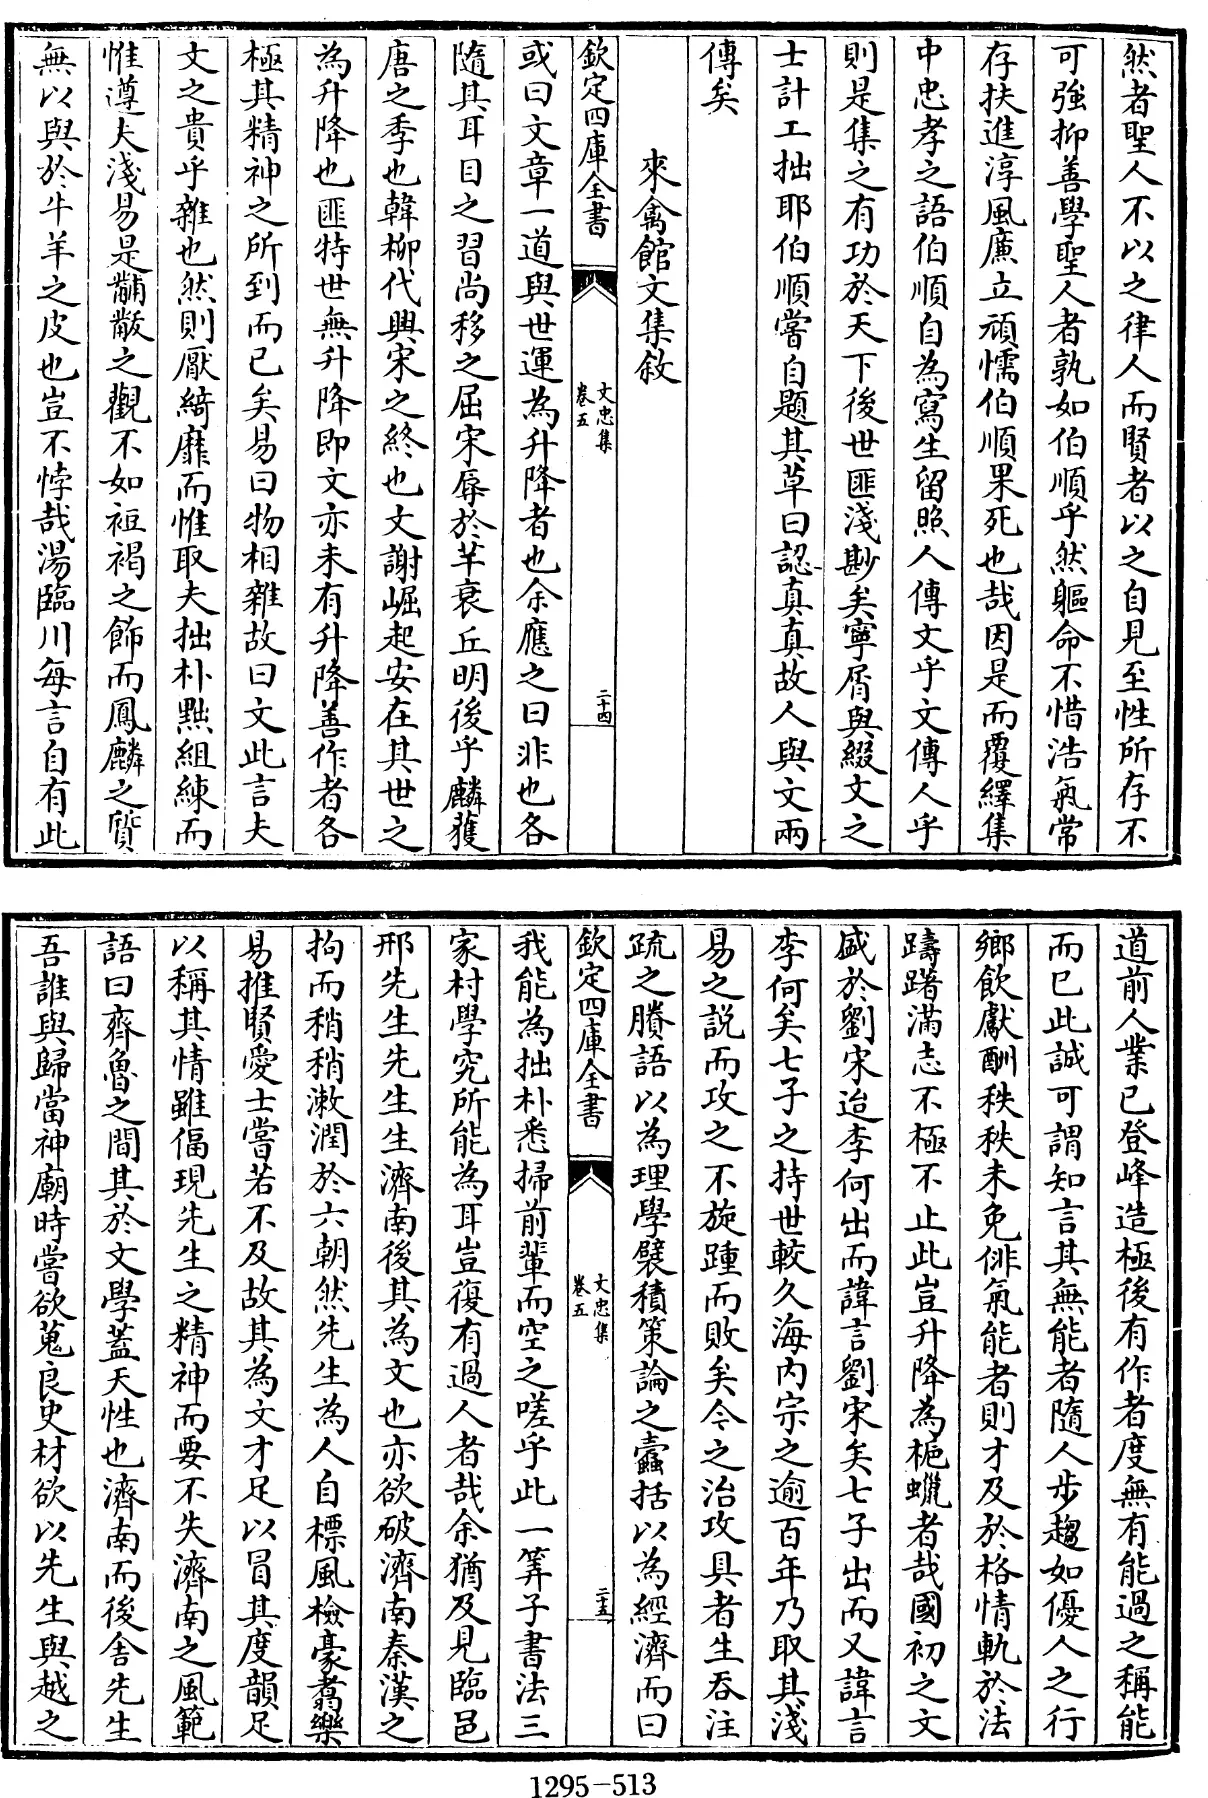 然者聖人不以之律人而賢者以之自見至性所存不
可強抑善學聖人者孰如伯順乎然軀命不惜浩氣常
存扶進淳風廉立頑懦伯順果死也哉因是而覆繹集
中忠孝之語伯順自為寫生留照人傳文乎文傳人乎
則是集之有功於天下後世匪淺尠矣寧屑與綴文之
士計工拙耶伯順嘗自題其草曰認真真故人與文兩
傳矣
來禽館文集敘
欽定四庫全書
文忠集
卷五
二十四
或曰文章一道與世運為升降者也余應之曰非也各
隨其耳目之習尚移之屈宋辱於芊衰丘明後乎麟獲
唐之季也韓柳代興宋之終也文謝崛起安在其世之
為升降也匪特世無升降即文亦未有升降善作者各
極其精神之所到而已矣易曰物相雜故曰文此言夫
文之貴乎雜也然則厭綺靡而惟取夫拙朴黜組練而
惟遵夫淺易是黼黻之觀不如袒褐之飾而鳳麟之質
無以與於牛羊之皮也豈不悖哉湯臨川每言自有此
道前人業已登峰造極後有作者度無有能過之稱能
而已此誠可謂知言其無能者隨人步趨如優人之行
鄉飲獻酬秩秩未免俳氣能者則才及於格情軌於法
躊躇滿志不極不止此豈升降為梔蠟者哉國初之文
盛於劉宋迨李何出而諱言劉宋矣七子出而又諱言
李何矣七子之持世較久海内宗之逾百年乃取其淺
易之說而攻之不旋踵而敗矣今之治攻具者生吞注
疏之賸語以為理學襞積策論之蠹括以為經濟而曰
欽定四庫全書
文忠集
卷五
二十五
我能為拙朴悉掃前輩而空之嗟乎此一筭子書法三
家村學究所能為耳豈復有過人者哉余猶及見臨邑
邢先生先生生濟南後其為文也亦欲破濟南秦漢之
拘而稍稍漱潤於六朝然先生為人自標風檢豪翥樂
易推賢愛士嘗若不及故其為文才足以冒其度韻足
以稱其情雖偪現先生之精神而要不失濟南之風範
語曰齊魯之間其於文學蓋天性也濟南而後舍先生
吾誰與歸當神廟時嘗欲蒐良史材欲以先生與越之
1295-513